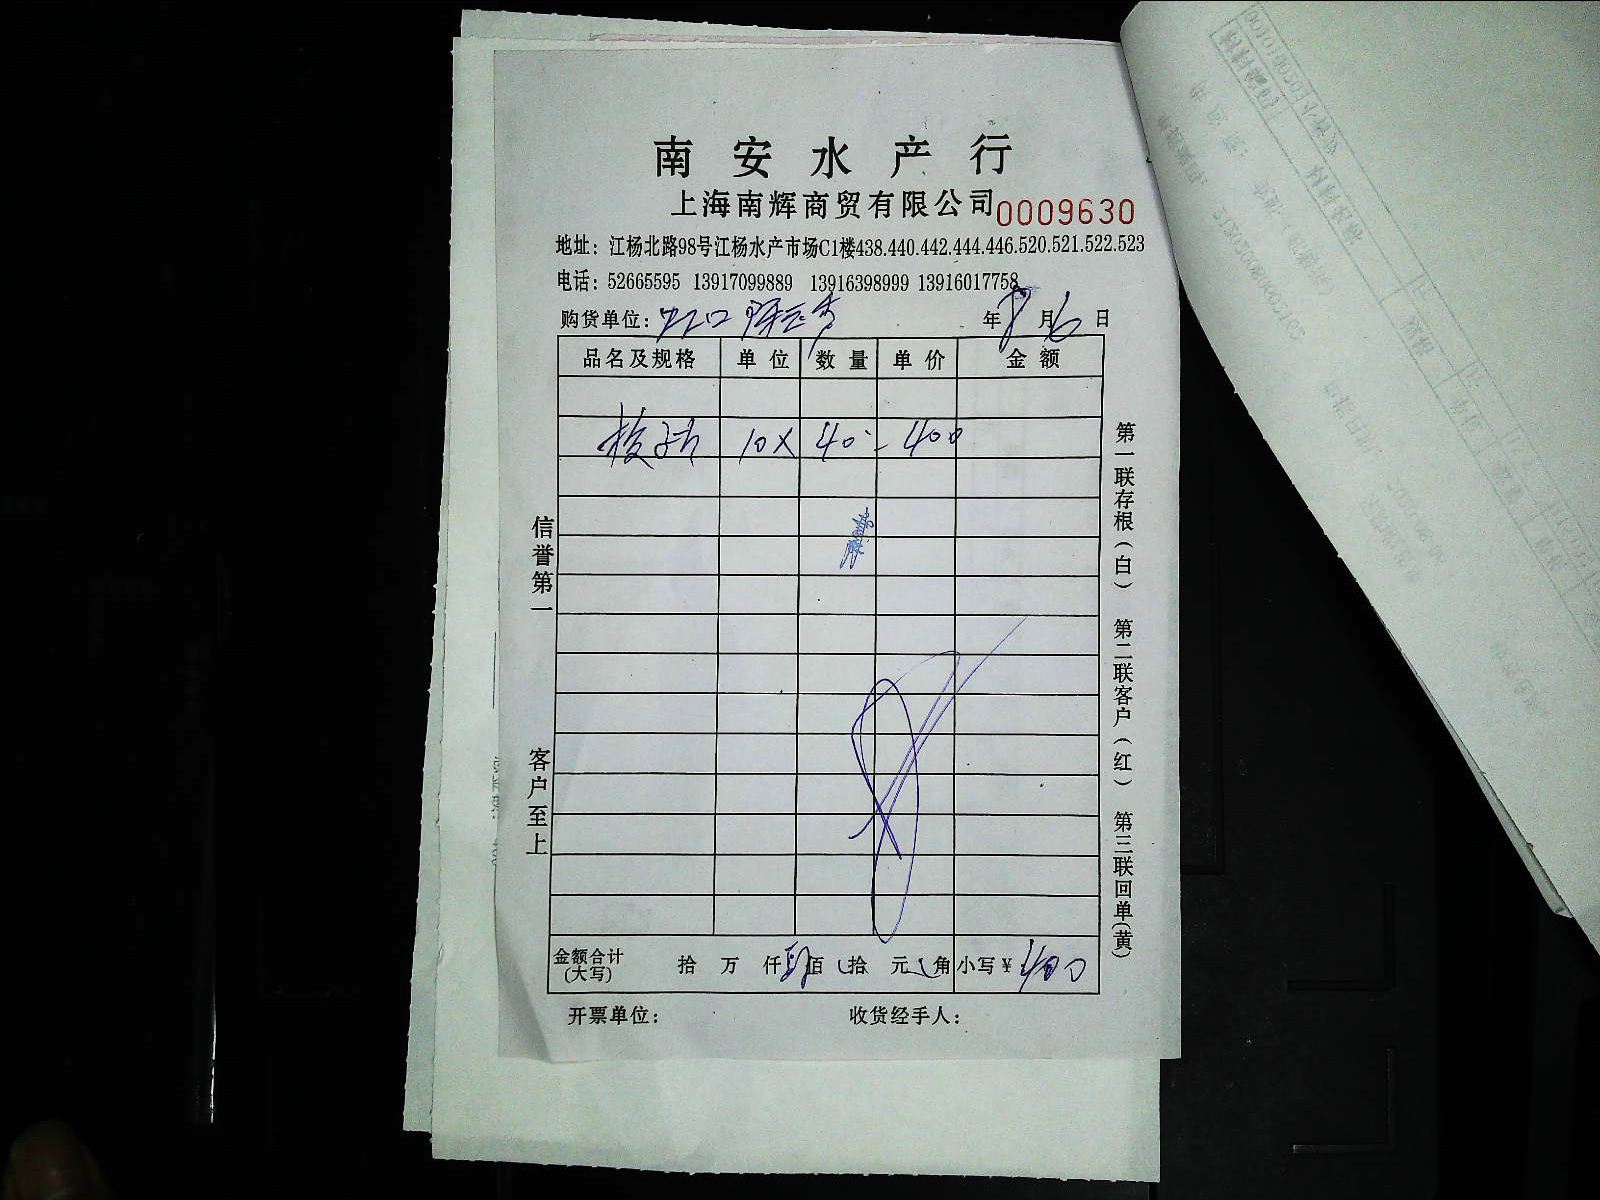 南安水产行
上海南辉商贸有限公司 0009630
地址：江杨北路98号江杨水产市场C1楼438.440.442.444.446.520.521.522.523
电话：52665595 13917099889 13916398999 13916017758
购货单位：虹口 年8月6日
品名及规格 单位 数量 单价 金额
10X 40 - 400
信誉第一
客户至上
第一联存根（白） 第二联客户（红） 第三联回单（黄）
金额合计（大写） 拾 万 仟 肆佰 拾 元 角 小写¥：400
开票单位： 收货经手人：